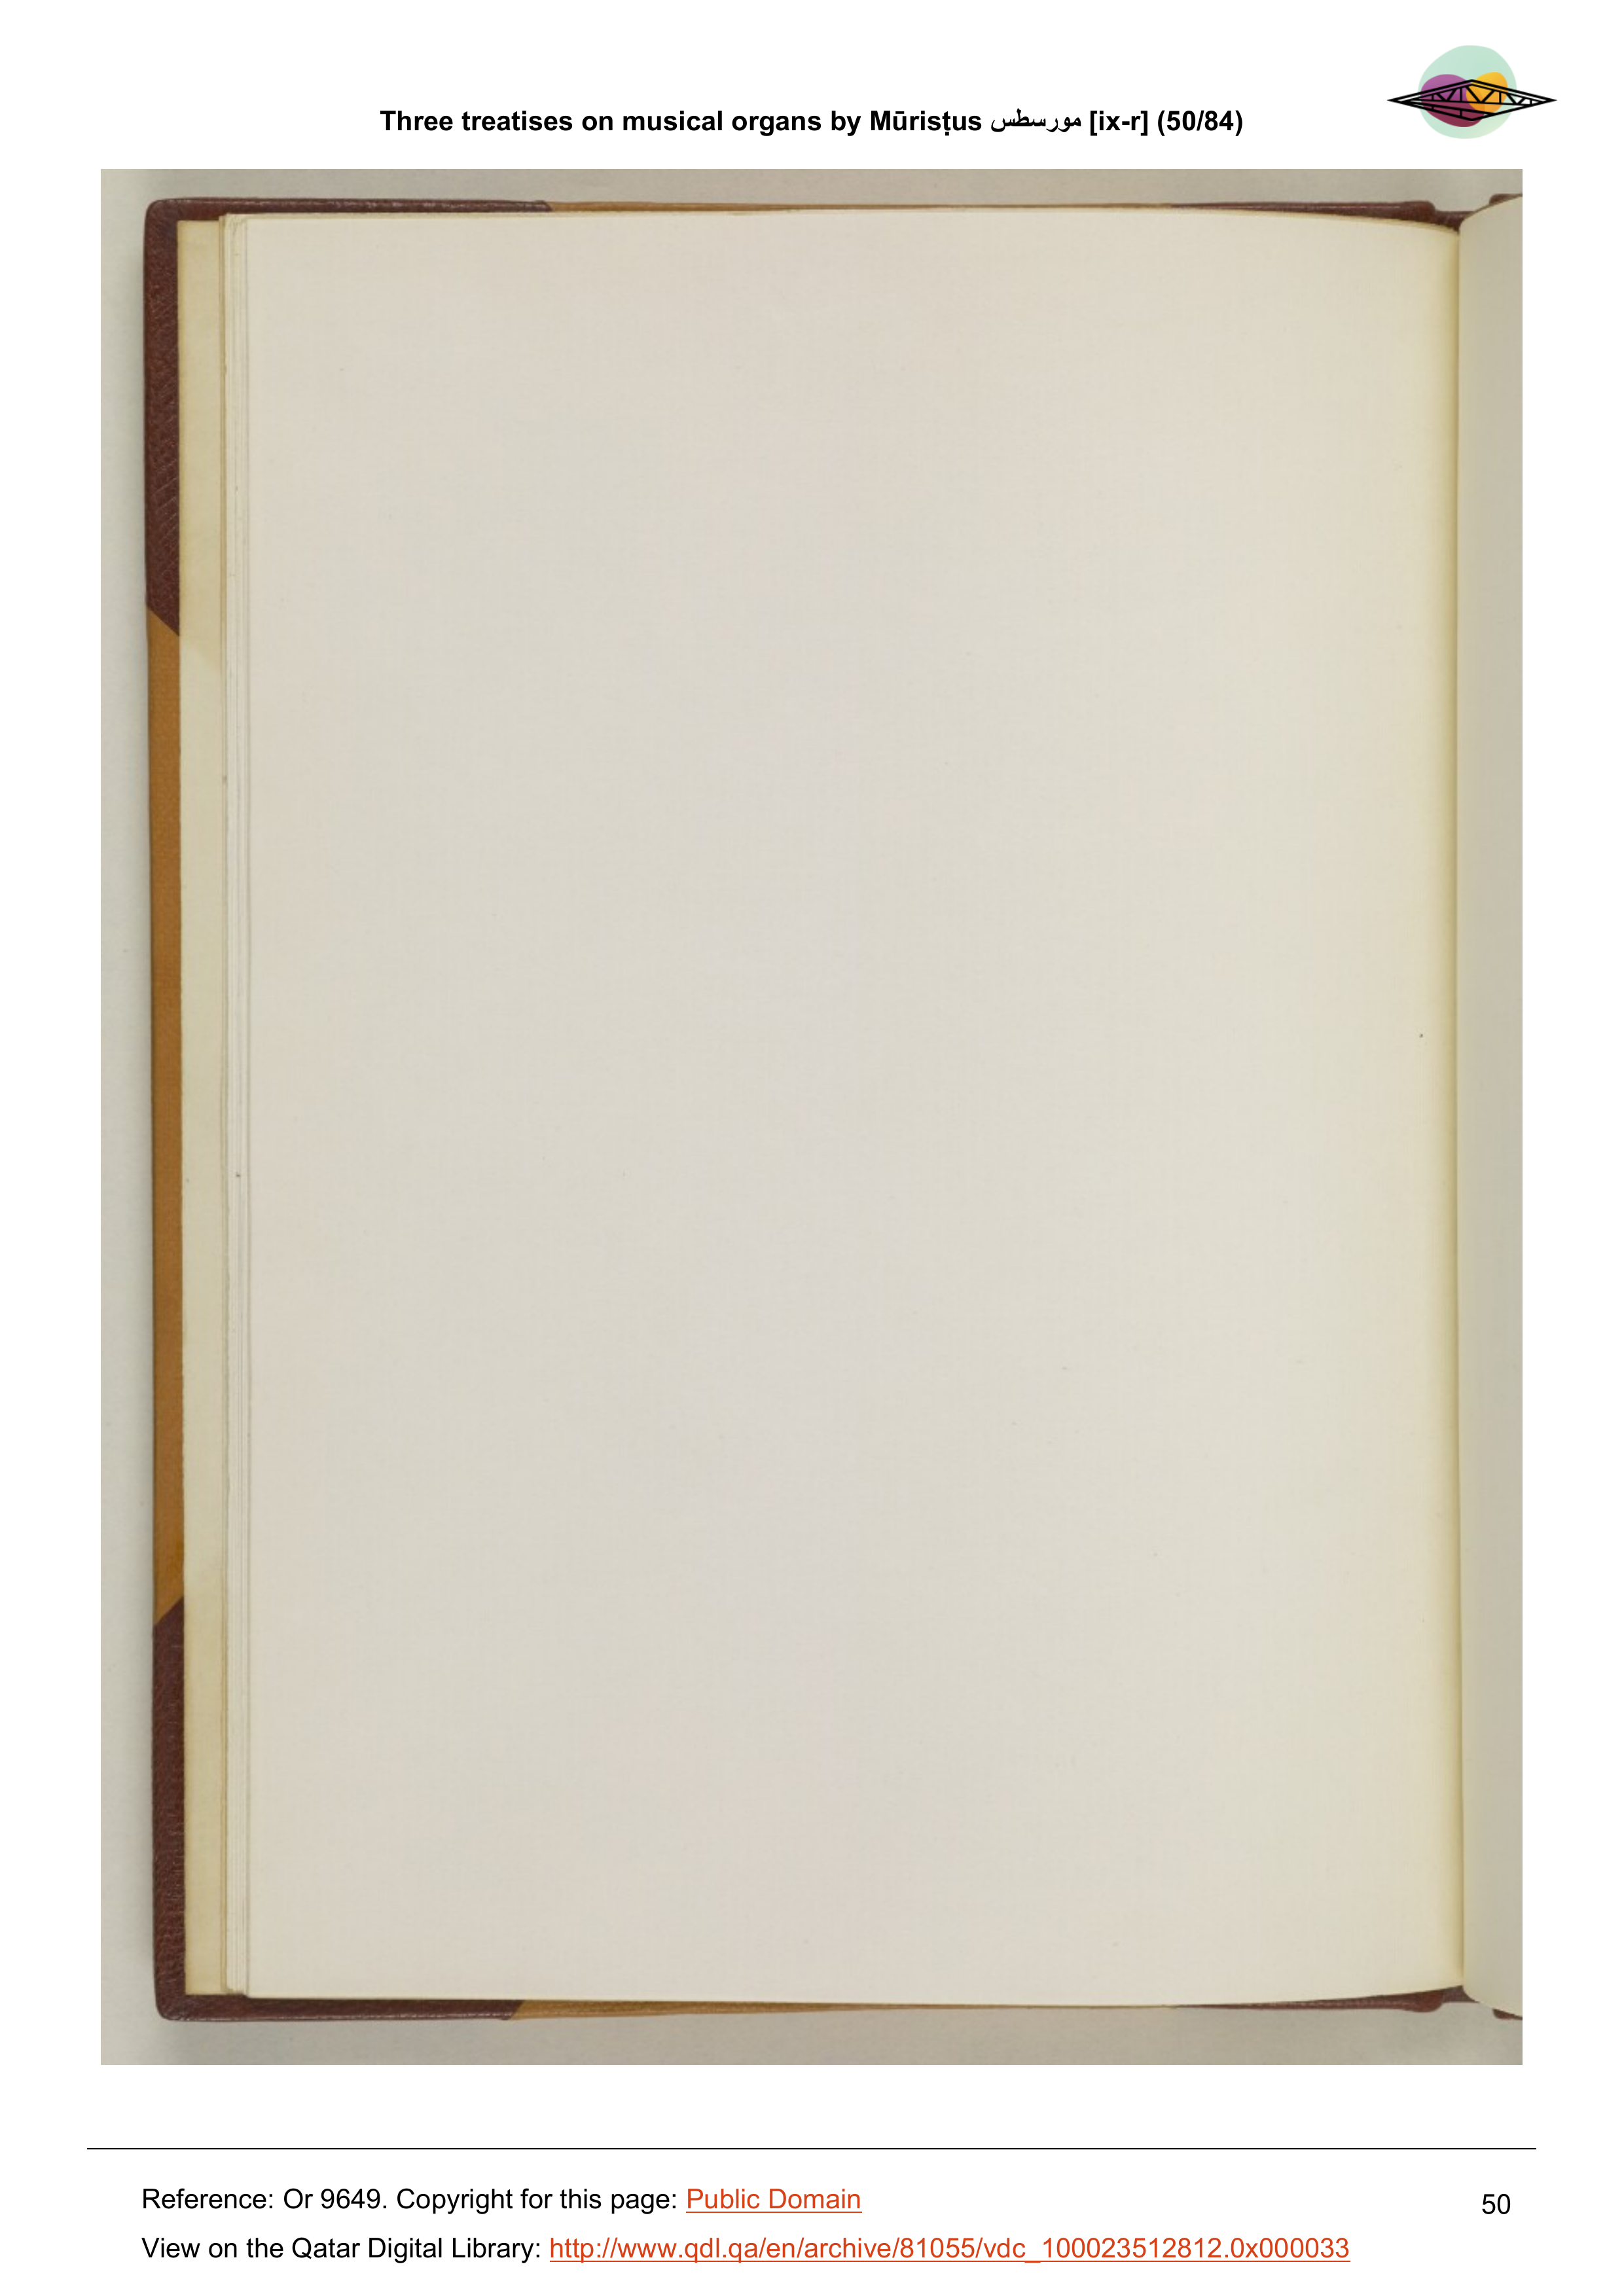 Three treatises on musical organs by Mūrisṭus مورسطس [ix-r] (50/84)
Reference: Or 9649. Copyright for this page: Public Domain
50
View on the Qatar Digital Library: http://www.qdl.qa/en/archive/81055/vdc_100023512812.0x000033